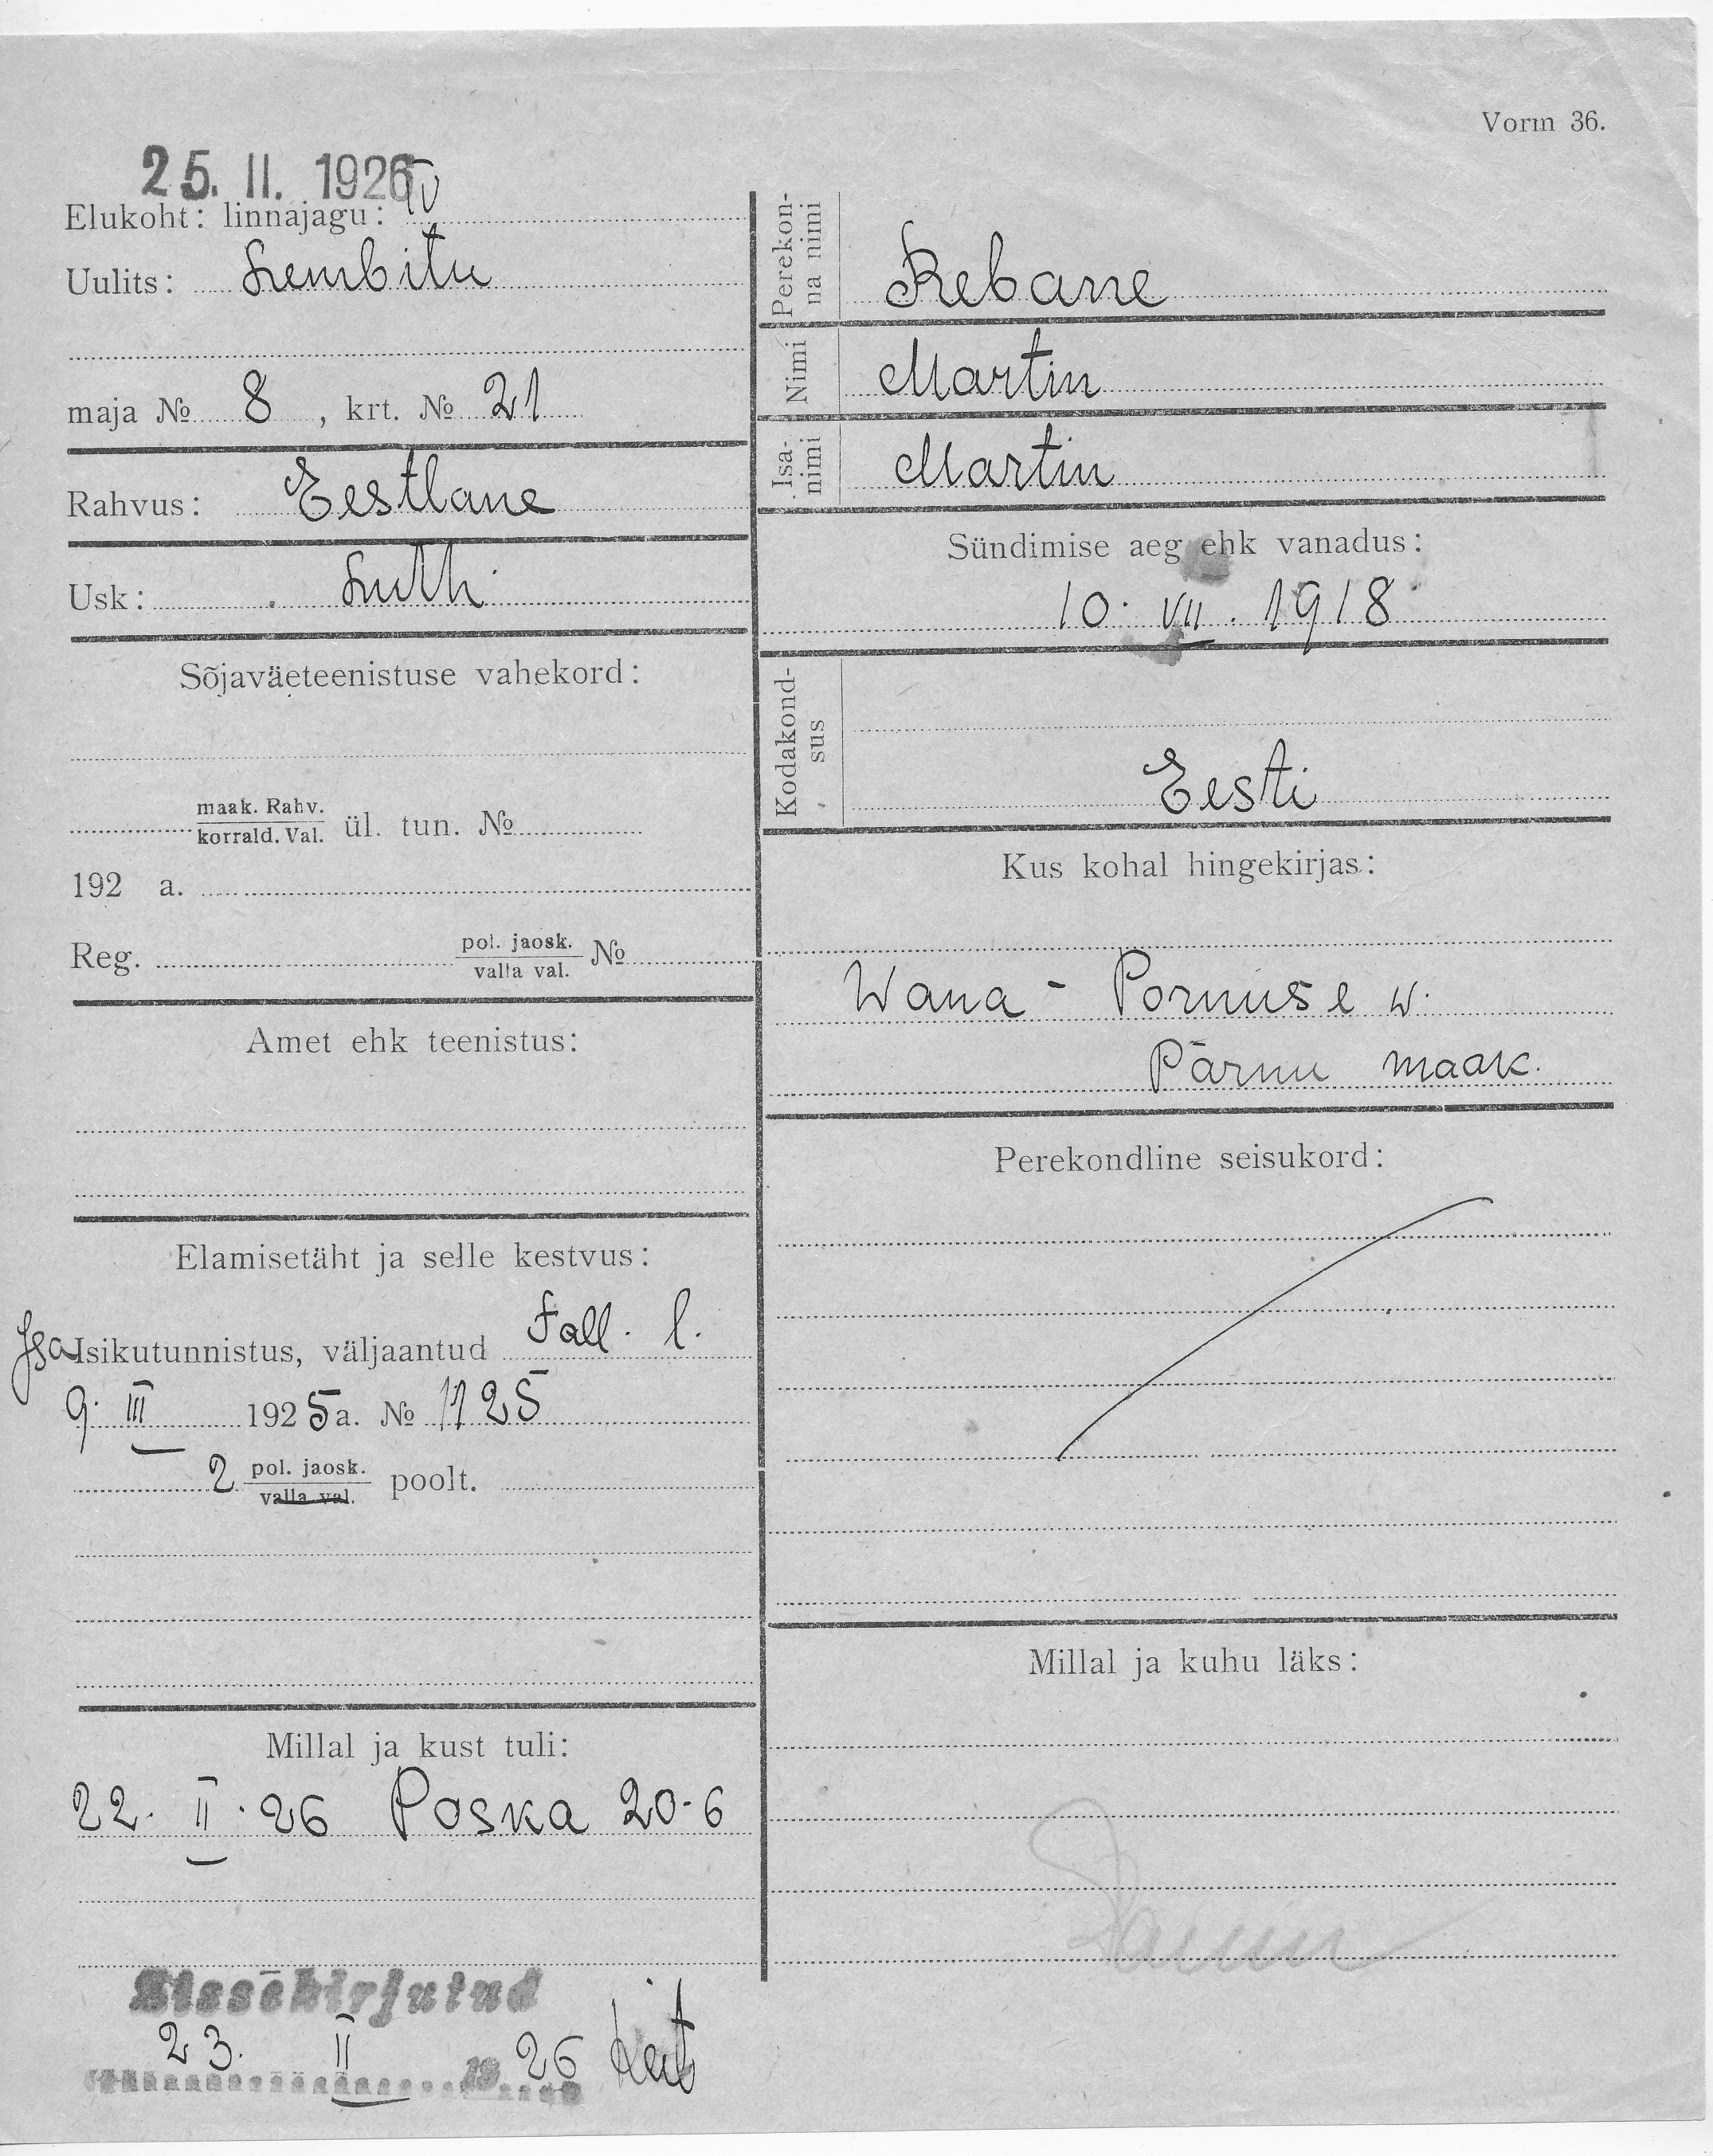 Vorm 36.
25. II. 1926
Elukoht: linnajagu: IV
Uulits: Lembitu
maja № 8, krt. № 21
Rahvus: Eestlane
Usk: Luth.
Sõjaväeteenistuse vahekord:
maak. Rahv.
korrald. Val. ül. tun. №
192 a.
Reg. pol. jaosk. №
valla val.
Amet ehk teenistus:
Elamisetäht ja selle kestvus:
Isa Isikutunnistus, väljaantud Tall. l.
9. III 1925 a. № 1125
2 pol. jaosk. poolt.
valla val.
Millal ja kust tuli:
22. II. 26 Poska 20-6
Sissekirjutud
23. II 1926
Perekon-
na nimi Rebane
Nimi Martin
Isa-
nimi Martin
Sündimise aeg ehk vanadus:
10. VII. 1918
Kodakond-
sus Eesti
Kus kohal hingekirjas:
Wana-Pornuse w.
Pärnu maak.
Perekondline seisukord:
Millal ja kuhu läks: